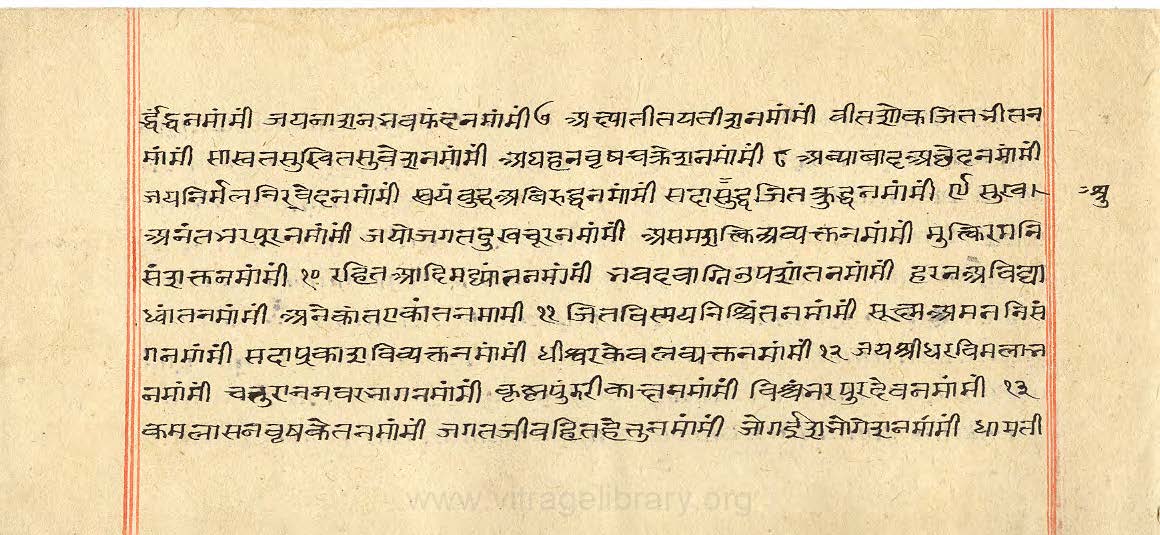 र्द्वंद्वनमांमी जयनाशनभवफंदनमांमीं ७ अच्यातीतयतीशनमांमीं वीतशोकजितभीतन
मांमीं साखतसुखितसुवेशनमांमीं अघहनवृषचक्रेशनमांमीं ८ अव्याबादअछेदनमांमी
जयनिर्मलनिरवेदनमांमीं स्वयंबुद्धअबिरुद्धनमांमीं सदासुद्धजितक्रुद्धनमांमीं ९ सुखा
= श्रु
अनंतभरपूरनमांमीं जयोजगतदुखचूरनमांमीं असमशक्तिअव्यक्तनमांमीं मुक्तिरमनि
संशक्तनमांमीं १० रहितआदिमध्यांतनमांमीं भवदवाग्निउपशांतनमांमीं हरनअविद्या
ध्वांतनमांमीं अनेकांतएकांतनमामी ११ जितविस्मयनिश्चिंतनमांमीं सूक्ष्मअमननिसं
गनमांमीं सदाप्रकाशविव्यक्तनमांमीं धीश्वरकेवलव्यक्तनमांमी १२ जयश्रीधरविमलान
नमांमीं चतुराननवरनागनमांमीं कृष्णपुंडरीकाक्षनमांमीं विश्वंभरपुरदेवनमांमीं १३
कमलासनवृषकेतनमांमीं जगतजीवहितहेतुनमांमीं जोगईशजोगेशनमांमीं धामती
www.vitragelibrary.org